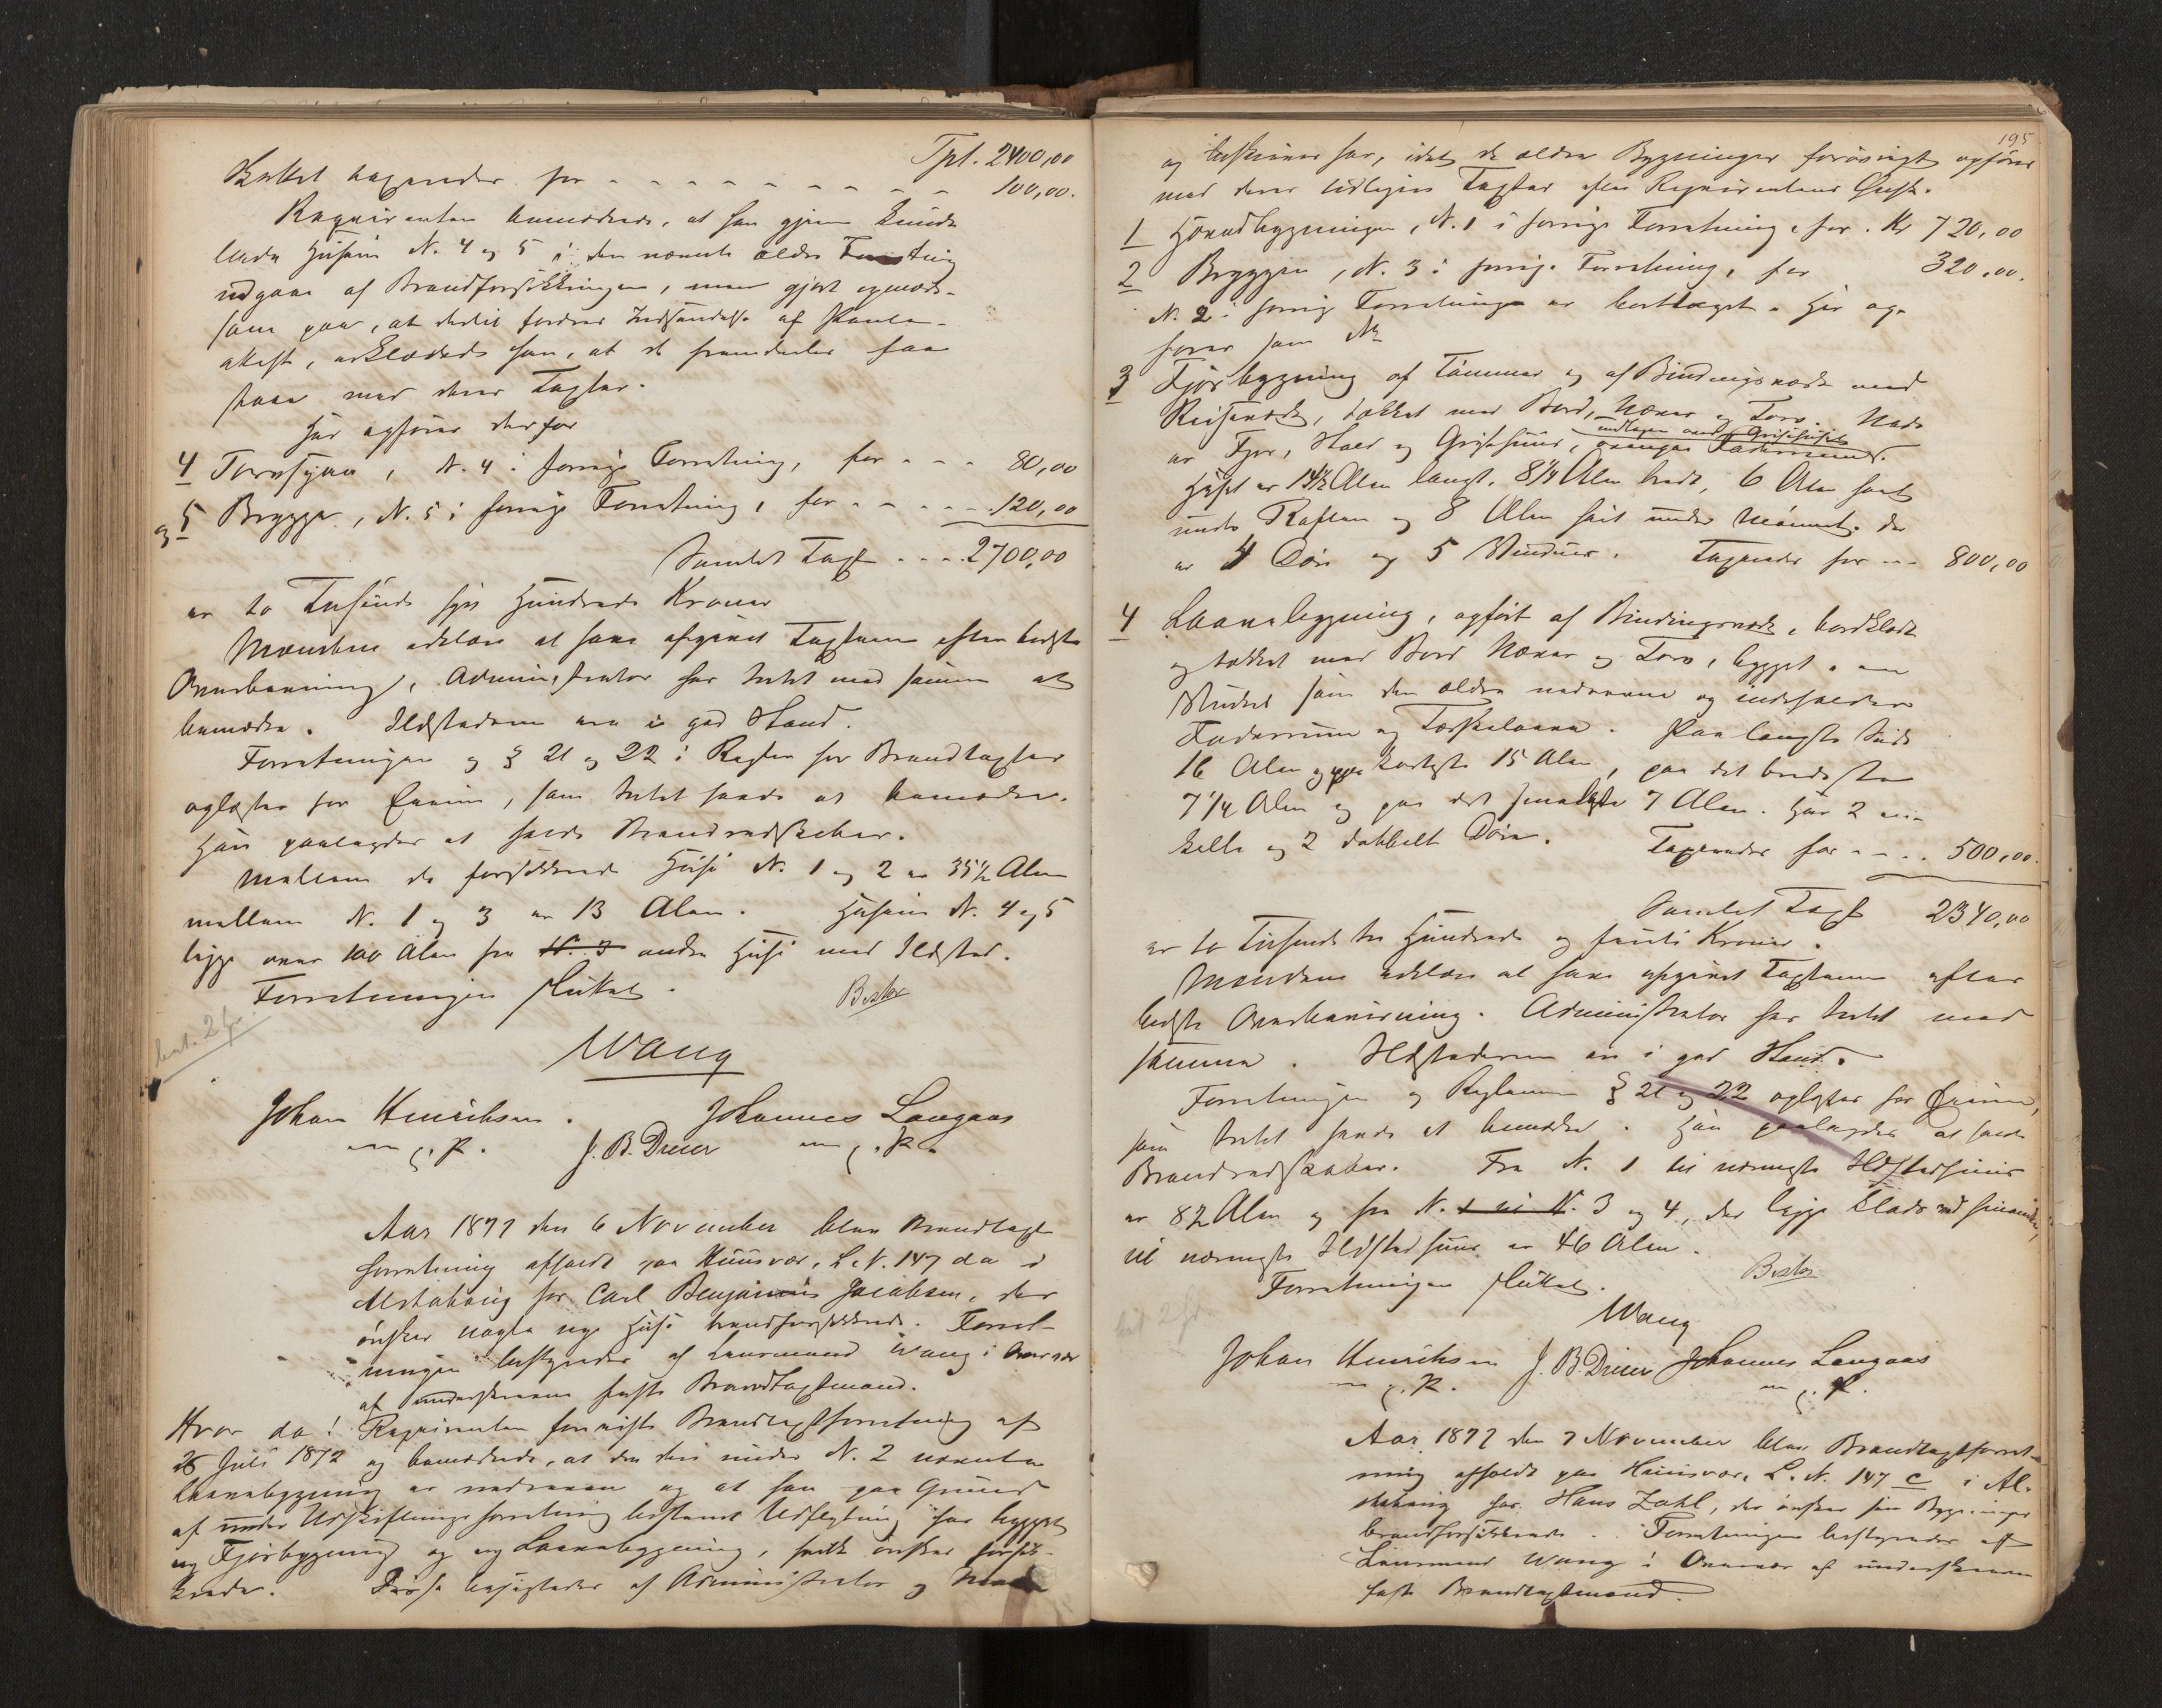 Tpt. 2400,00
tækket taxeredes for - - - - - - - - - 100,00.
Requirenten bemærkede, at han gjerne kunde
lade Husene N. 4 og 5 i den nævnte ældre Forretning
udgaae af Brandforsikkringen, men gjort opmærk-
som paa, at dertil fordres Indsendelse af Pante-
attest, erklærede han, at de fremdeles faar
staae med deres Taxter.
Her opføres derfor
4 , N. 4 i forrige Forretning, for - - - 80,00
5 Brygge, N. 5 i forrige Forretning, for - - - - - 120,00
Samlet Taxt - - - 2700,00
er to Tusinde syv Hundrede Kroner
Mændene erklære at have afgivet Taxterne efter bedste
Overbeviisning, Administrator har Intet mod samme at
bemærke. Ildstederne ere i god Stand.
Forretningen og § 21 og 22 i Regler for Brandtaxter
oplæstes for Eieren, som Intet havde at bemærke.
Han paalagdes at holde Brandredskaber.
Mellem de forsikkrede Huse N. 1 og 2 er 35½ Alen
mellem N. 1 og 3 er 13 Alen. Husene N. 4 og 5
ligge over 100 Alen fra N. 3 andre Huse med Ildsted.
Forretningen sluttet.
Wang
Johan Henriksen. Johannes Langaas
m. p. P. J. B. Dreier m. p. P.
Aar 1877 den 6 November blev Brandtaxt
forretning afholdt paa Huusvær, L. N. 147 da i
Alstahoug for Carl Benjamin Jacobsen, der
ønsker nogle nye Huse brandforsikkrede. Forret-
ningen bestyredes af Lensmand Wang i Overvær
af underskrevne faste Brandtaxtmænd.
Hvor da! Requirenten foreviste Brandtaxtforretning af
25 Juli 1872 og bemærkede, at den deri under N. 2 nævnte
Laavebygning er nedreven og at han paa Grund
af under Udskiftningsforretning bestemt Udflytning har bygget
ny Fjøsbygning og ny Laavebygning, hvilke ønskes forsik-
krede. Disse besigtedes af Administrator og Mænd
195
og beskrives her, idet de ældre Bygninger forøvrigt opføres
med deres tidligere Taxter efter Requirentens Ønske.
1 Hovedbygningen, N. 1 i forrige Forretning, for . Kr 720,00
2 Bryggen, N. 3 i forrige Forretning, for 320,00.
N. 2 i forrige Forretning er borttaget. Her op-
føres som N.
3 Fjøsbygning af Tømmer og af Bindingsværk med
Reisværk, tækket med Bord, Næver og Torv. Nede
er Fjøs, Stald og Grisehuus, ovenpaa Foderrum.
undtagen over Grisehuset
Huset er 14½ Alen langt, 8¼ Alen bredt, 6 Alen høit
under Raften og 8 Alen høit under Mønnet. Der
er 4 Døre og 5 Vinduer. Taxeredes for - - 800,00
4 Laavebygning, opført af Bindingsværk, bordklædt
og tækket med Bord Næver og Torv, bygget i en
Vinkel som den ældre nedrevne og indeholder
Foderrum og Tærskelaave. Paa længste Side
16 Alen og paa korteste 15 Alen, paa det bredeste
7¼ Alen og paa det smaleste 7 Alen. Har 2 en-
kelte og 2 dobbelt Døre. Taxeredes for - - - 500,00.
Samlet Taxt 2340,00
er to Tusinde tre Hundrede og førti Kroner.
Mændene erklære at have afgivet Taxterne efter
bedste Overbeviisning. Administrator har Intet mod
samme. Ildstederne ere i god Stand.
Forretningen og Reglerne § 21 og 22 oplæstes for Eieren,
som Intet havde at bemærke. Han paalagdes at holde
Brandredskaber. Fra N. 1 til nærmeste Ildstedhuus
er 82 Alen og fra N. 1 til N. 3 og 4, der ligge klods ved hinanden,
til nærmeste Ildstedhuus er 46 Alen.
Forretningen sluttet.
Wang
Johan Henriksen J. B. Dreier Johannes Langaas
m. p. P. m. p. P.
Aar 1877 den 7 November blev Brandtaxtforret-
ning afholdt paa Huusvær, L. N. 147 c i Al-
stahoug for Hans Zahl, der ønsker sin Bygninger
brandforsikkrede. Forretningen bestyredes af
Lensmand Wang i Overvær af underskrevne
faste Brandtaxtmænd.